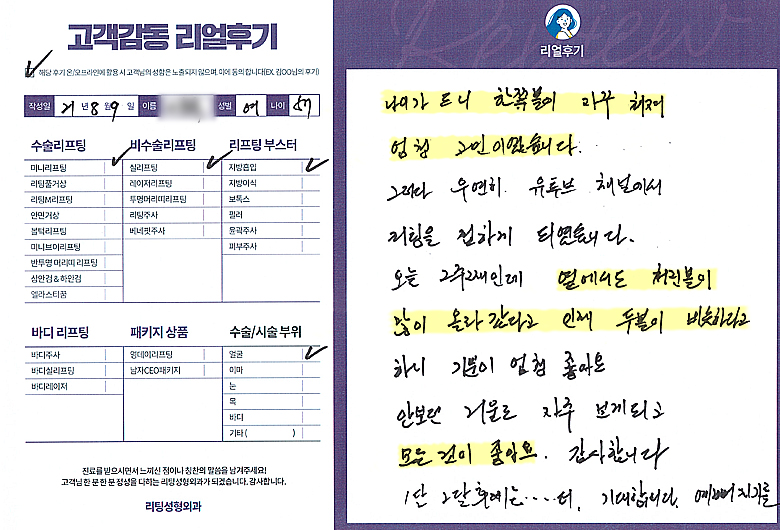 고객감동 리얼후기
해당 후기 온/오프라인에 활용 시 고객님의 성함은 노출되지 않으며, 이에 동의 합니다(EX. 김OO님의 후기)
작성일 21년 8월 9일 이름 성별 여 나이 57
수술리프팅
미니리프팅
리팅풀거상
리팅M리프팅
안면거상
봄턱리프팅
미니브이리프팅
반투명 머리띠 리프팅
상안검 & 하안검
엘라스티꿈
비수술리프팅
실리프팅
레이저리프팅
투명머리띠리프팅
리팅주사
베네핏주사
리프팅 부스터
지방흡입
지방이식
보톡스
필러
윤곽주사
피부주사
바디 리프팅
바디주사
바디실리프팅
바디레이저
패키지 상품
엄데이리프팅
남자CEO패키지
수술/시술 부위
얼굴
이마
눈
목
바디
기타 ( )
진료를 받으시면서 느끼신 점이나 칭찬의 말씀을 남겨주세요!
고객님 한 분 한 분 정성을 다하는 리팅성형외과가 되겠습니다. 감사합니다.
리팅성형외과
Review
리얼후기
나이가 드니 한쪽볼이 자꾸 처져
엄청 고민이었습니다.
그러다 우연히 유튜브 채널에서
리팅을 접하게 되었습니다.
오늘 2주2째인데 옆에서도 처진볼이
많이 올라갔다고 인제 두볼이 비슷하다고
하니 기분이 엄청 좋아요
안보던 거울도 자주 보게되고
모든것이 좋아요. 감사합니다
1달 2달후에는.... 더, 기대합니다. 예뻐지기를